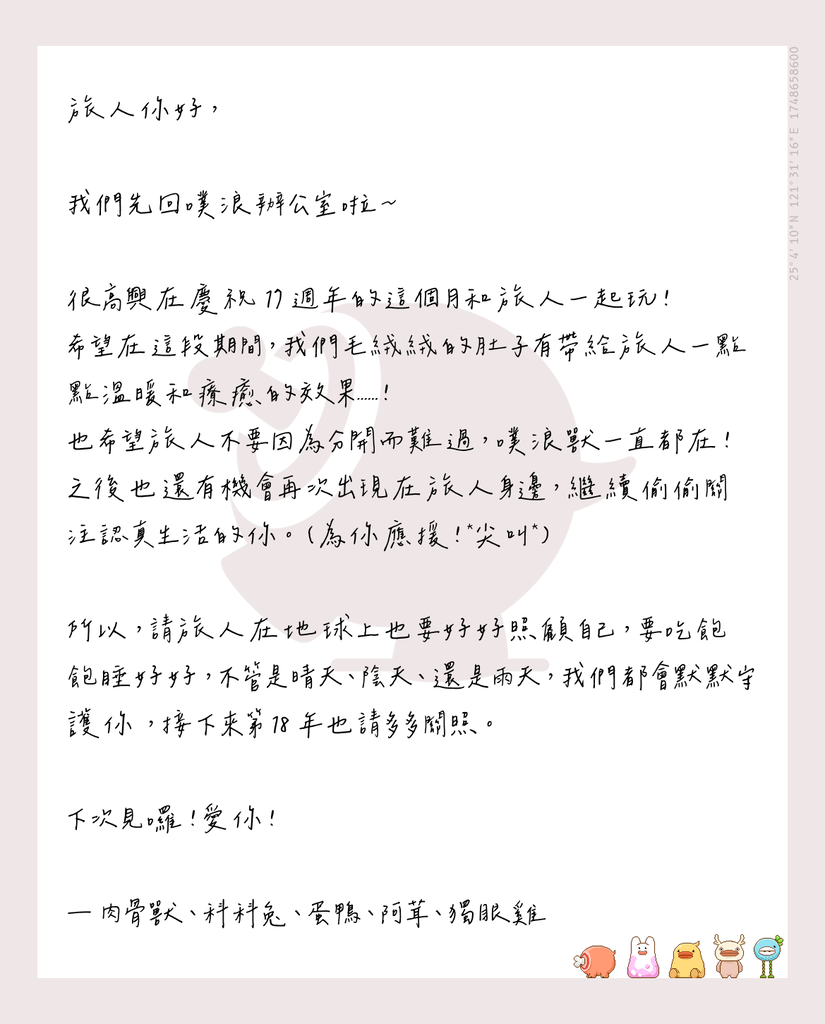 旅人你好，
我們先回噗浪辦公室啦~
很高興在慶祝 17 週年的這個月和旅人一起玩！
希望在這段期間，我們毛絨絨的肚子有帶給旅人一點
點溫暖和療癒的效果......！
也希望旅人不要因為分開而難過，噗浪獸一直都在！
之後也還有機會再次出現在旅人身邊，繼續偷偷關
注認真生活的你。(為你應援！*尖叫*)
所以，請旅人在地球上也要好好照顧自己，要吃飽
飽睡好好，不管是晴天、陰天、還是雨天，我們都會默默守
護你，接下來第 18 年也請多多關照。
下次見囉！愛你！
— 肉骨獸、科科兔、蛋鴨、阿茸、獨眼雞
25° 4' 10" N 121° 31' 16" E 1748658600